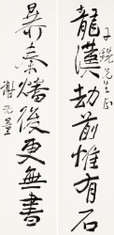 龍漢劫前惟有石
先生正
暴秦燔後更無書
謝无量